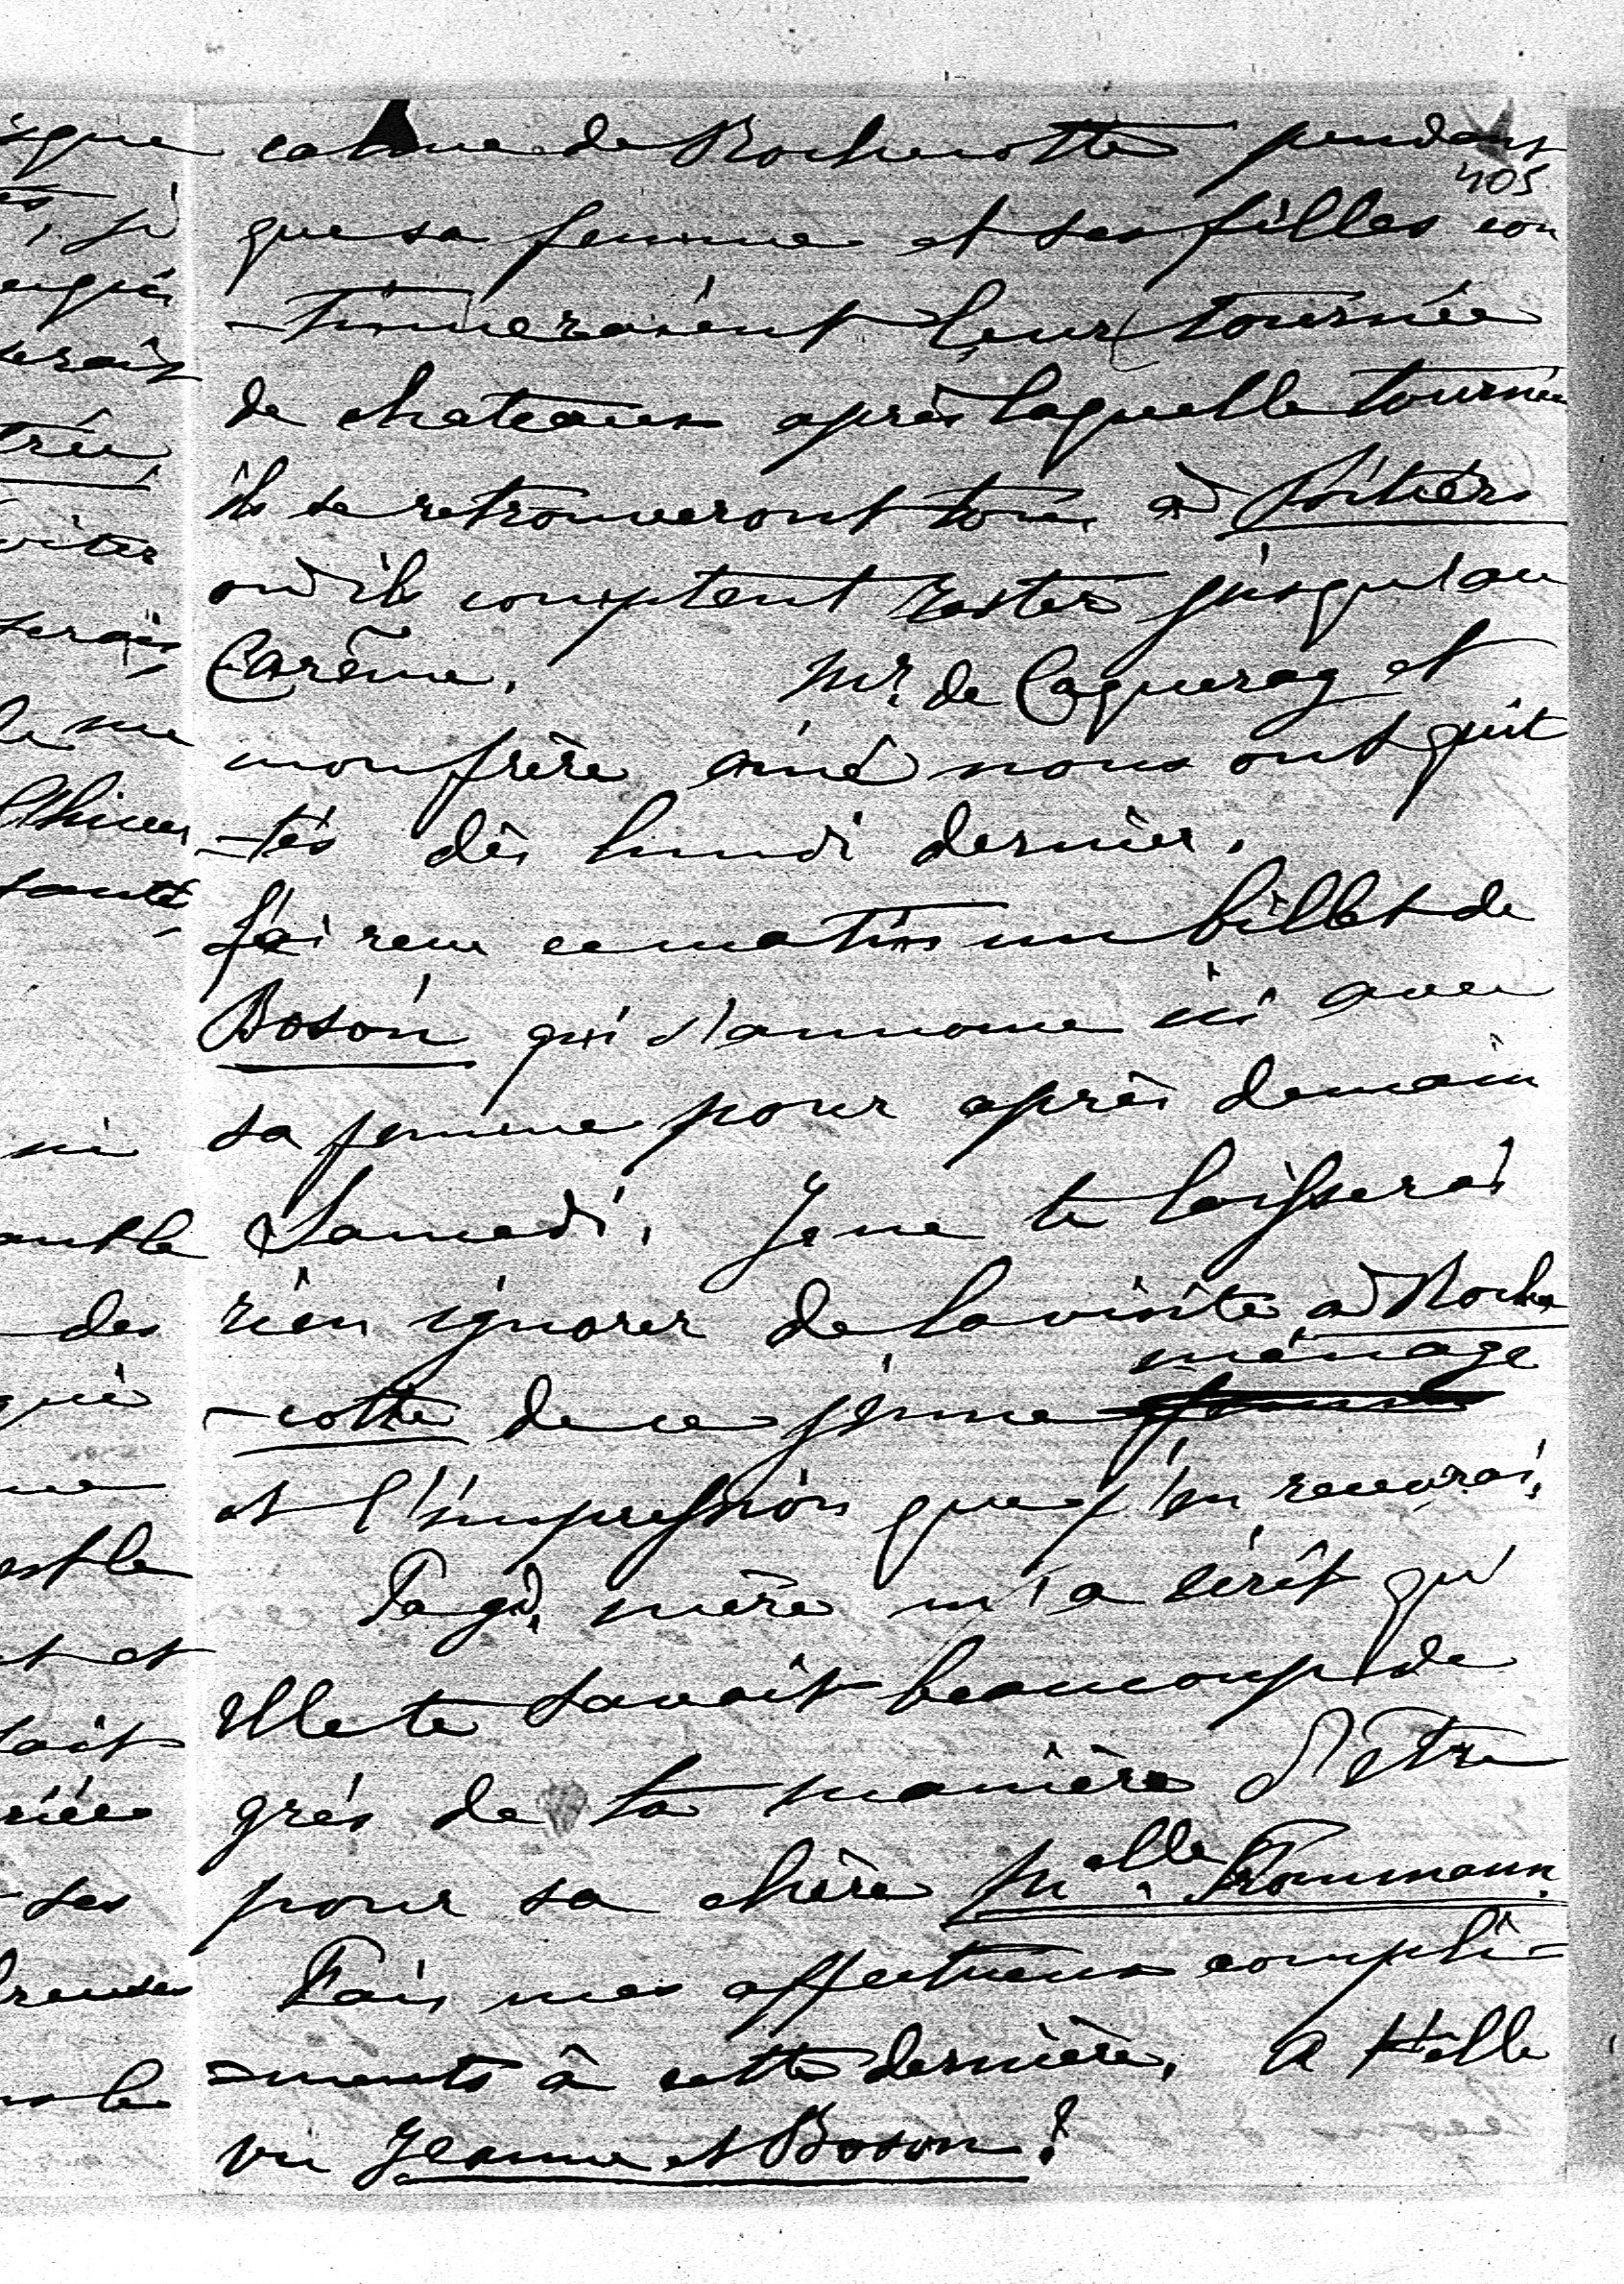 405
calme de Rochecotte pendant
que sa femme et ses filles con
-tinueraient leur tournée
de chateaux après laquelle tournée
ils se retrouveront tous à Poitiers
où ils comptent rester jusqu'au
Carême. Mr. de Caqueray et
mon frère ainé nous ont quit
-tés dès lundi dernier.
J'ai reçu ce matin un billet de
Boson qui s'annonce ici avec
sa femme pour après demain
Samedi. Je ne te laisserai
rien ignorer de la visite à Roche
ménage
-cotte de ce jeune
et l'impression que j'en recevrai.
Ta gd. mère m'a écrit qu'
elle te savait beaucoup de
grés de ta manière d'être
pour sa chère Melle. Frommann.
Fais mes affectueux compli=
=ments à cette dernière. A t'elle
vu Jeanne et Boson?